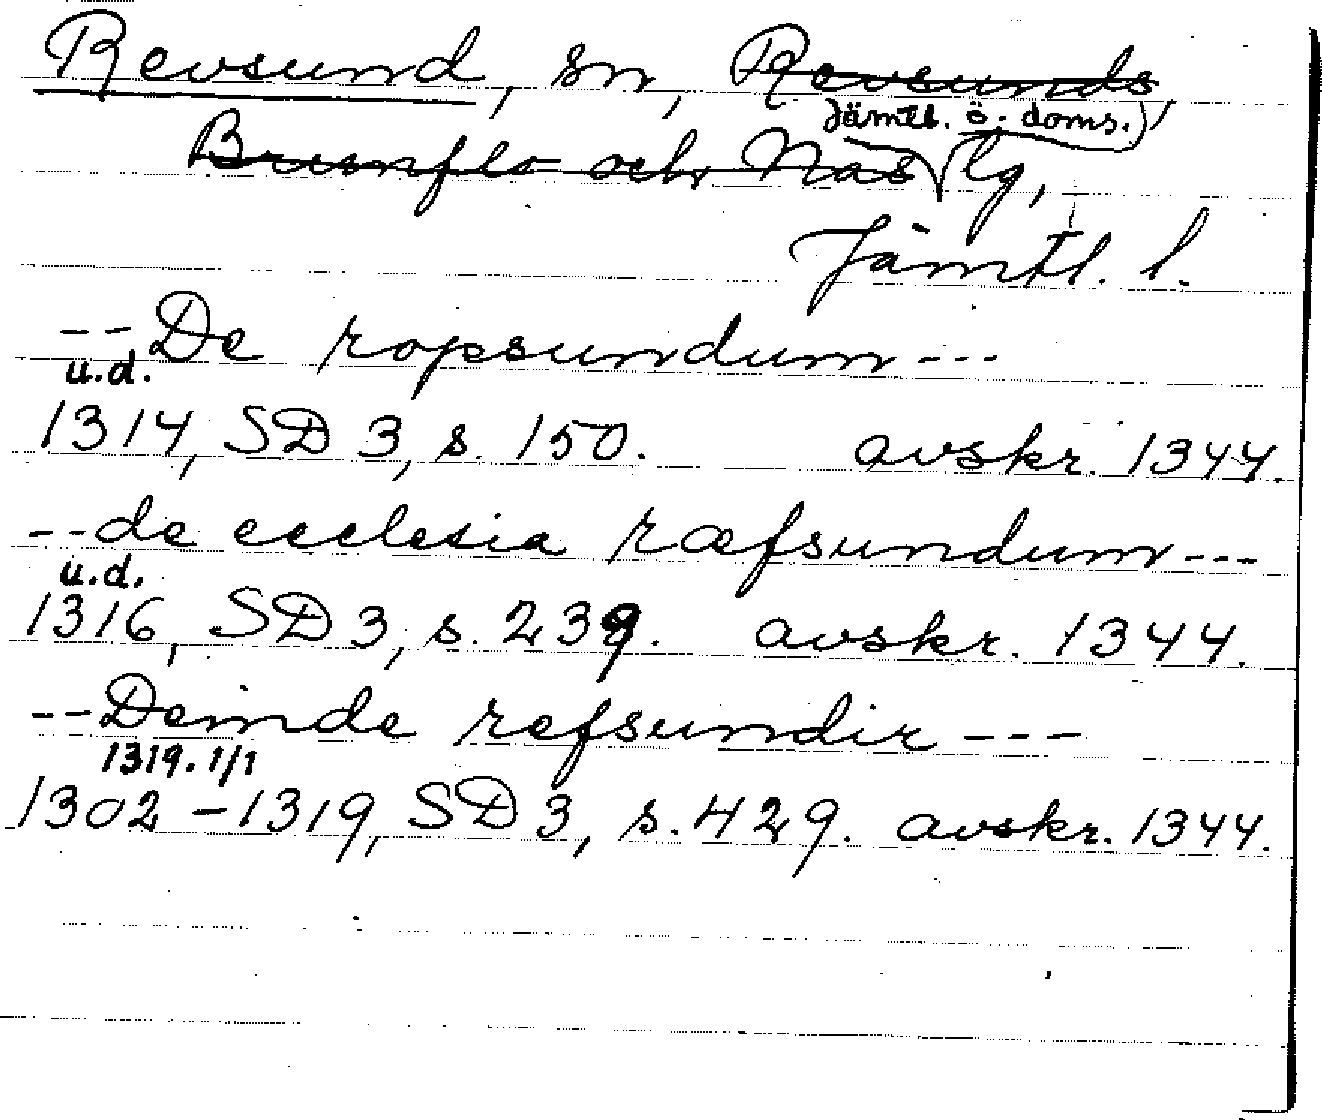 Revsund, sn, Revsunds,
Jämtl. ö. doms.)
Brunflo och Näs lg,
Jämtl. l.
-- De ropsundum ---
u.d.
1314, SD 3, s. 150. avskr. 1344.
-- de ecclesia ræfsundum ---
u.d.
1316, SD 3, s. 239. avskr. 1344.
-- Deinde refsundir ---
1319. 1/1
1302 - 1319, SD 3, s. 429. avskr. 1344.